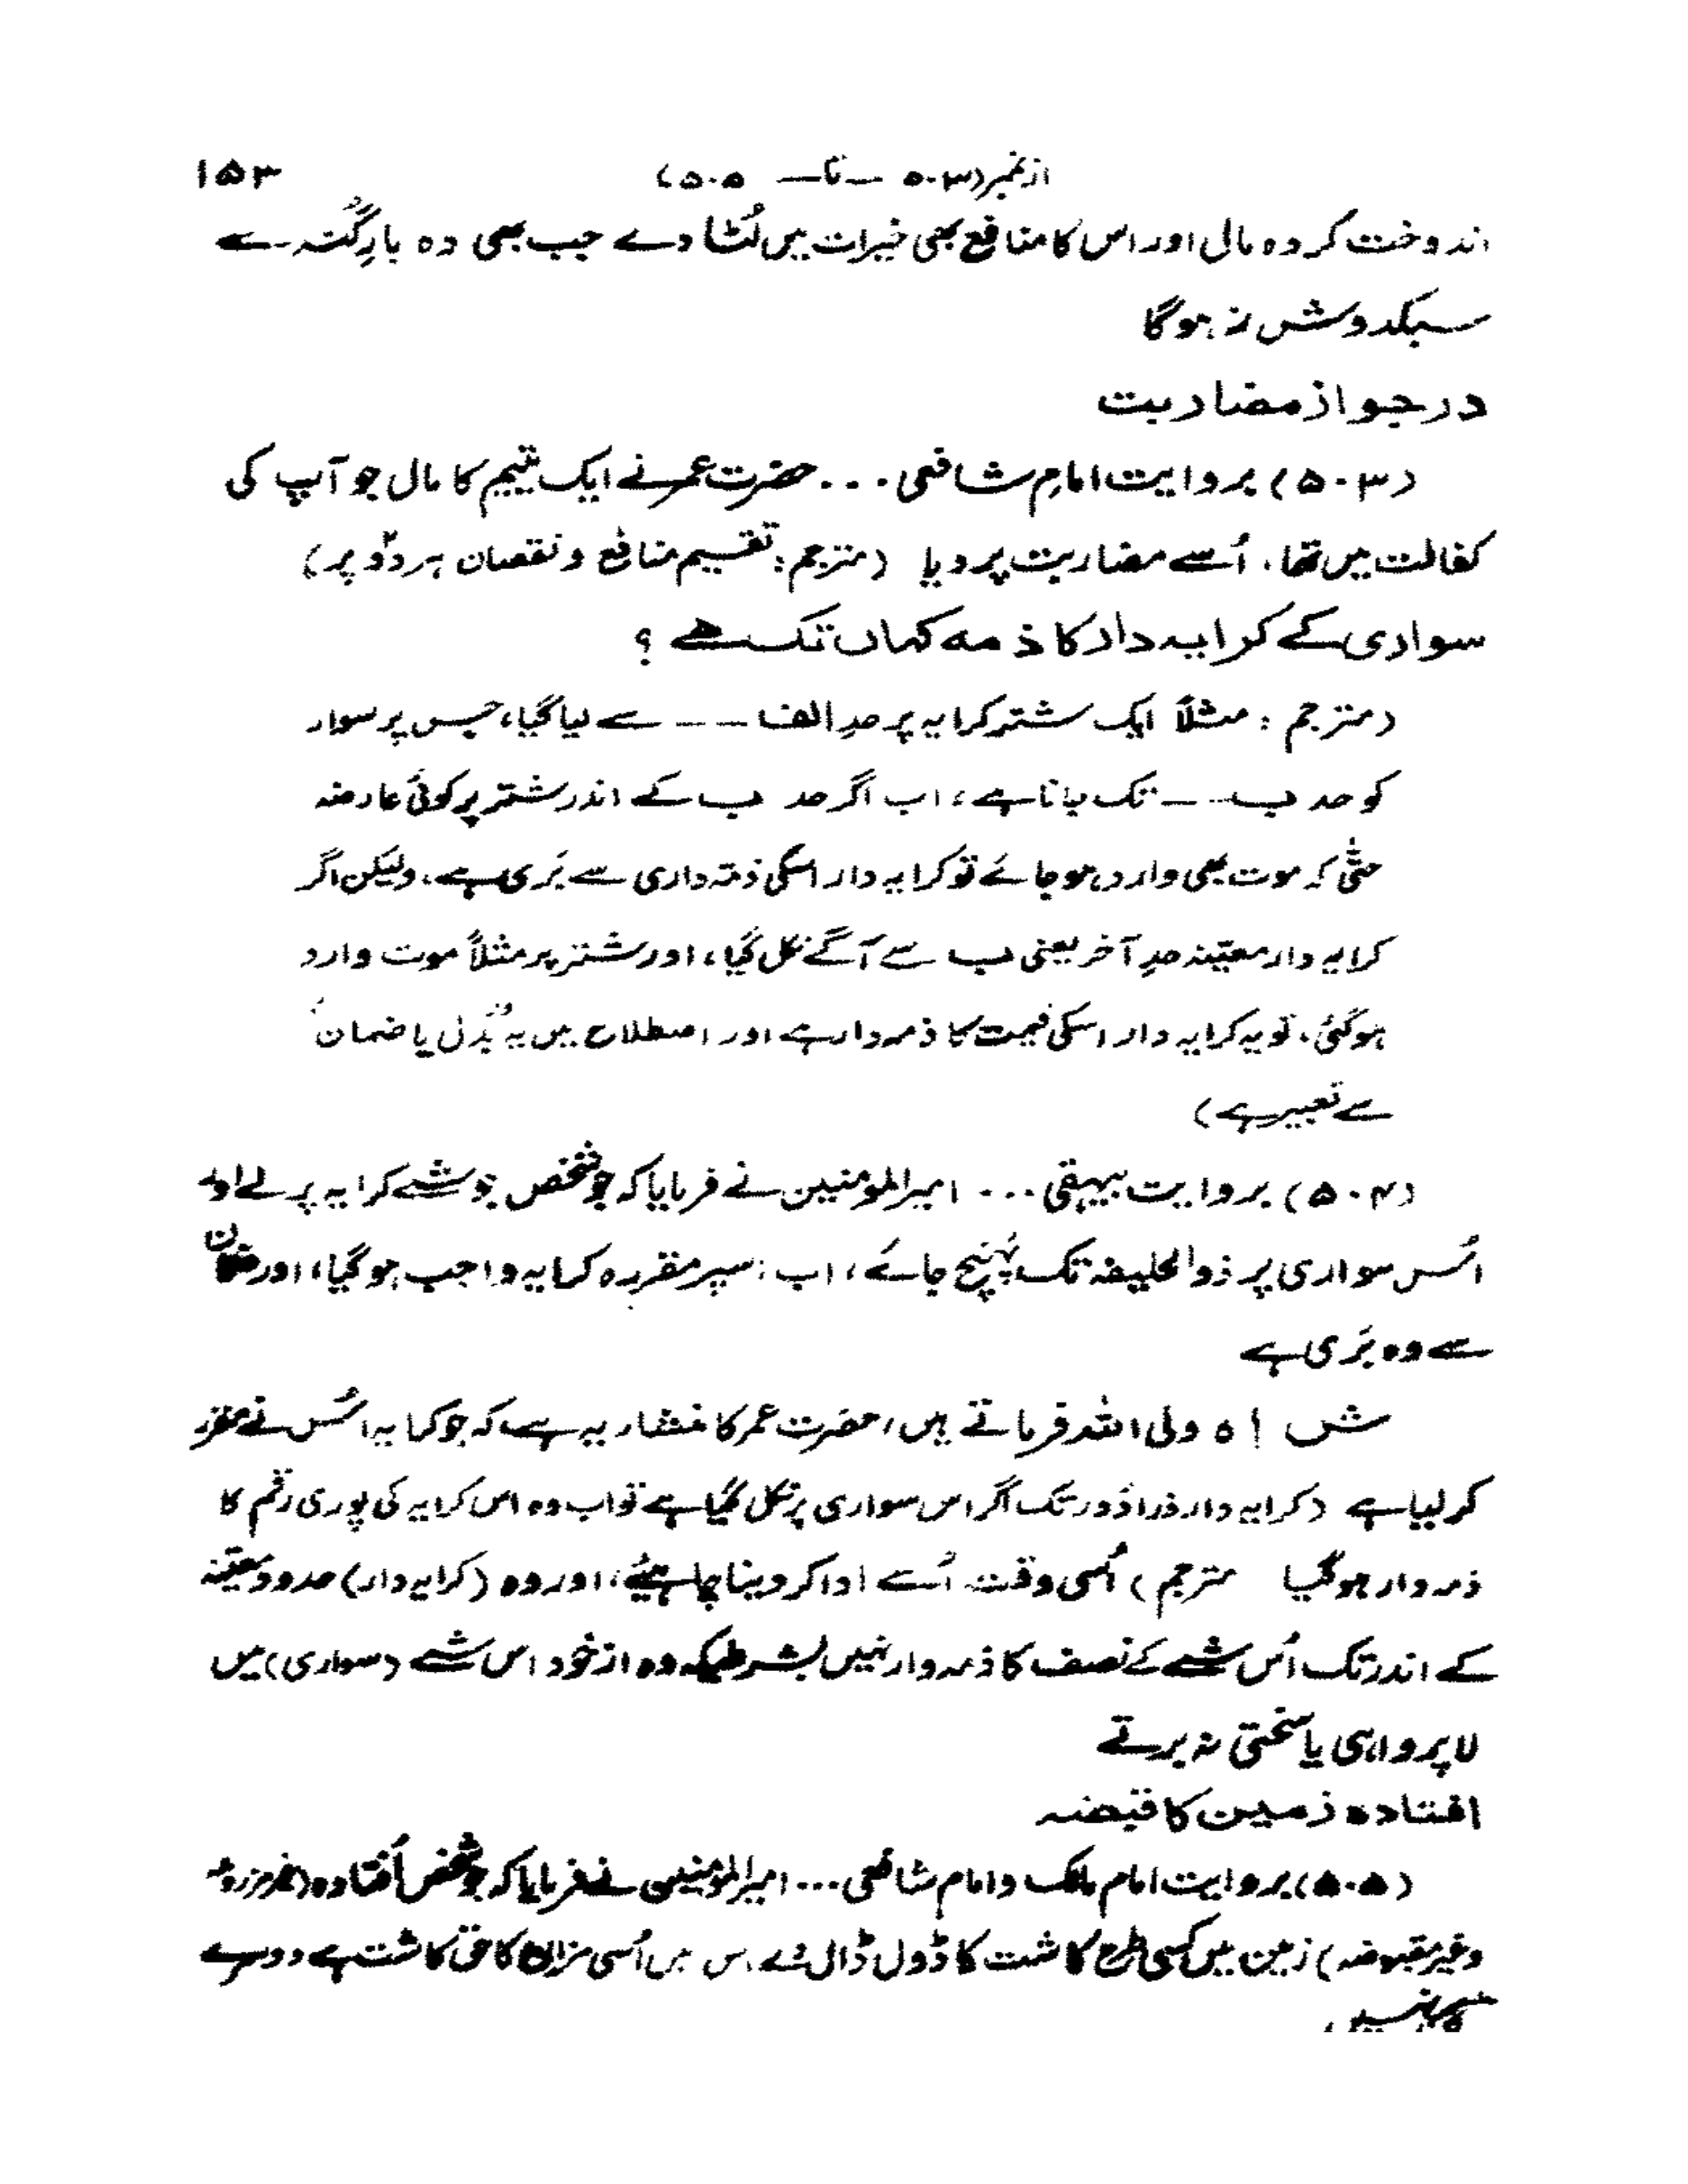 ازنمبر(۵۰۳ — تا — ۵۰۵) ۱۵۳
اندوخت کردہ مال اور اس کا منافع بھی خیرات میں لُٹا دے جب بھی وہ بارِ گُنہ سے
سبکدوش نہ ہوگا
در جواز مضاربت
(۵۰۳) بروایت امامِ شافعی ... حضرت عمر نے ایک یتیم کا مال جو آپ کی
کفالت میں تھا، اُسے مضاربت پر دیا (مترجم: تقسیم منافع و نقصان ہر دو پر)
سواری کے کرایہ دار کا ذمہ کہاں تک ہے ؟
(مترجم : مثلاً ایک شتر کرایہ پر حدِ الف -- سے لیا گیا، جس پر سوار
کو حد ب -- تک جانا ہے، اب اگر حد ب کے اندر شتر پر کوئی عارضہ
حتّٰی کہ موت بھی وارد ہو جائے تو کرایہ دار اسکی ذمّہ داری سے بَری ہے، ولیکن اگر
کرایہ دار معیّنہ حدِ آخر یعنی ب سے آگے نکل گیا، اور شتر پر مثلاً موت وارد
ہوگئی، تو یہ کرایہ دار اسکی قیمت کا ذمہ دار ہے اور اصطلاح میں یہ "بُدل یا ضمان"
سے تعبیر ہے)
(۵۰۴) بروایت بیہقی ... امیرالمؤمنین نے فرمایا کہ جو شخص جو شے کرایہ پر لے اور
اُس سواری پر ذوالحلیفہ تک پُہنچ جائے، اب اسپر مقررہ کرایہ واجب ہوگیا، اور ضمان
سے وہ بَری ہے
ش اہ ولی اللہ فرماتے ہیں، حضرت عمر کا منشاء یہ ہے کہ جو کرایہ اُس نے مقرر
کر لیا ہے (کرایہ دار ذرا دُور تک اگر اس سواری پر نکل گیا ہے تو اب وہ اس کرایہ کی پوری رقم کا
ذمہ دار ہوگیا مترجم) اُسی وقت اُسے ادا کر دینا چاہیئے، اور وہ (کرایہ دار) حدود معیّنہ
کے اندر تک اُس شے کے نصف کا ذمہ دار نہیں بشرطیکہ وہ ازخود اس شے (سواری) میں
لاپرواہی یا سختی نہ برتے
افتادہ زمین کا قبضہ
(۵۰۵) بروایت امام مالک و امام شافعی ... امیرالمؤمنین نے فرمایا کہ جو شخص اُفتادہ (غیر مزروعہ
وغیر مقبوضہ) زمین میں کسی طرح کاشت کا ڈول ڈال دے اس میں اُسی مزارع کا حق کاشت ہے دوسرے
کا نہیں